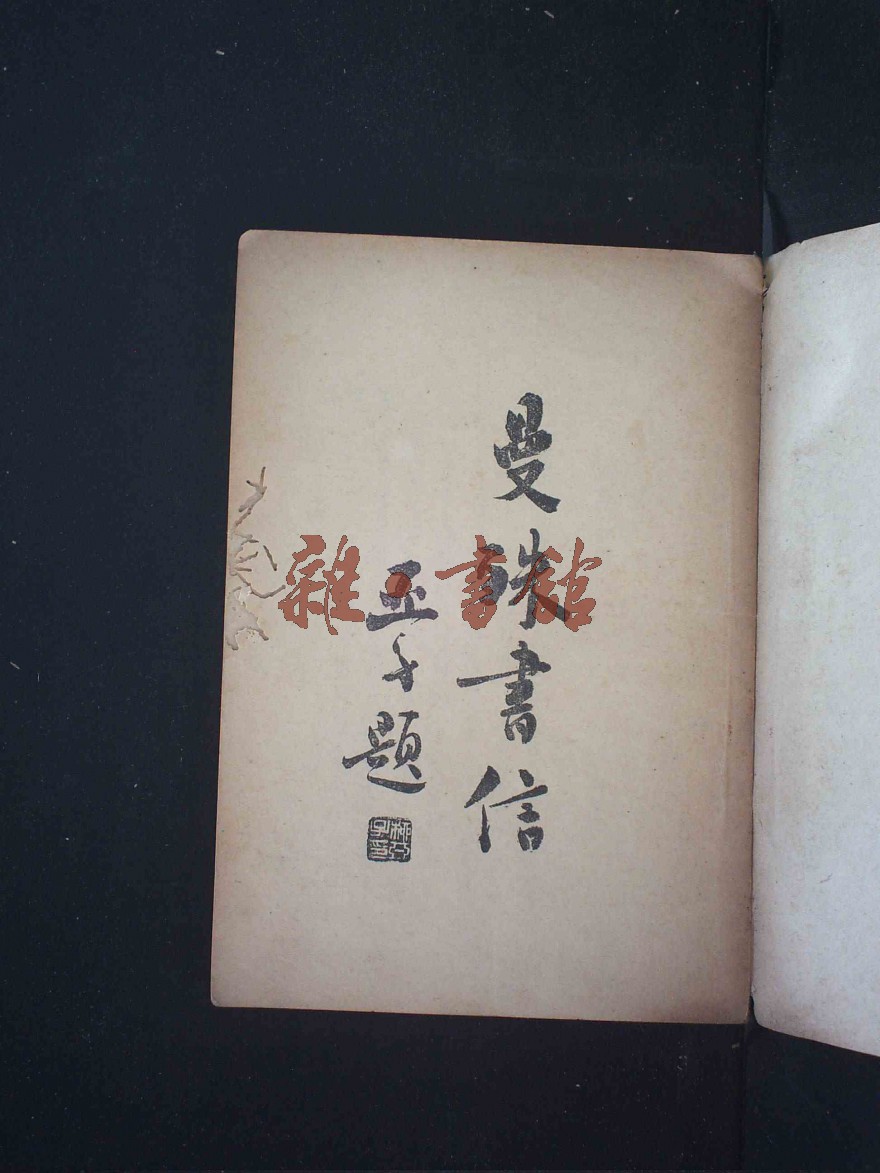 曼殊書信
亞子題
柳亞子印
雜·書館